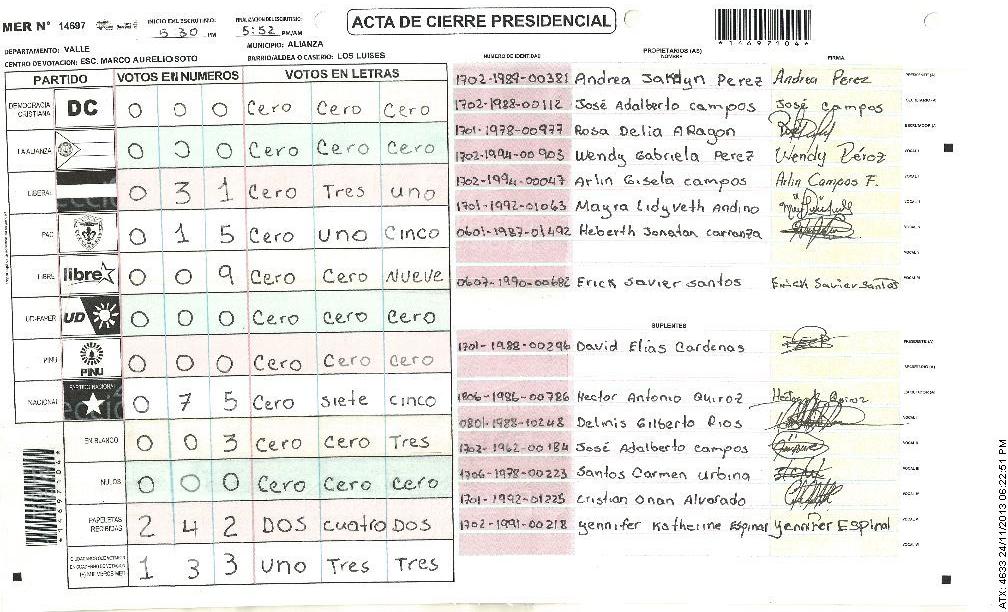 ACTA DE CIERRE PRESIDENCIAL
MER N° 14697
INICIO DEL ESCRUTINIO: 5 30 PM
FINALIZACION DE ESCRUTINIO: 5:52 PM/AM
*14697104*
DEPARTAMENTO: VALLE
MUNICIPIO: ALIANZA
CENTRO DE VOTACION: ESC. MARCO AURELIO SOTO
BARRIO/ALDEA O CASERIO: LOS LUISES
PARTIDO VOTOS EN NUMEROS VOTOS EN LETRAS
DEMOCRACIA CRISTIANA DC 0 0 0 Cero Cero Cero
LA ALIANZA 0 0 0 Cero Cero Cero
LIBERAL 0 3 1 Cero Tres uno
PAC 0 1 5 Cero uno cinco
LIBRE libre 0 0 9 Cero Cero Nueve
UD-FAPER UD 0 0 0 Cero Cero Cero
PINU PINU 0 0 0 Cero Cero cero
NACIONAL PARTIDO NACIONAL 0 7 5 Cero siete cinco
EN BLANCO 0 0 3 Cero cero Tres
NULOS 0 0 0 Cero Cero cero
PAPELETAS RECIBIDAS 2 4 2 DOS cuatro Dos
1 3 3 uno Tres Tres
NUMERO DE IDENTIDAD PROPIETARIOS (AS) NOMBRE FIRMA
1702-1989-00381 Andrea Perez Andrea Perez PRESIDENTE (A)
1702-1988-00112 José Adalberto campos José Campos SECRETARIO (A)
1701-1978-00977 Rosa Delia ARagon ESCRUTADOR (A)
1702-1994-00903 Wendy Gabriela Perez Wendy Pérez VOCAL I
1702-1994-00047 Arlin Gisela campos Arlin Campos F. VOCAL II
1701-1992-01063 Mayra Lidyveth Andino VOCAL III
0601-1987-01492 Heberth Jonatan carranza VOCAL IV
VOCAL V
0607-1990-00682 Erick Savier santos Erick Savier santos VOCAL VI
SUPLENTES
1701-1988-00296 David Elias Cardenas PRESIDENTE (A)
SECRETARIO (A)
1806-1986-00786 Hector Antonio Quiroz Quiroz ESCRUTADOR (A)
0801-1988-10248 Delmis Gilberto Rios VOCAL I
1702-1962-00184 José Adalberto campos VOCAL II
1706-1978-00223 Santos Carmen urbina VOCAL III
1701-1992-01225 Cristian Onan Alvarado VOCAL IV
1702-1991-00218 yennifer Katherine Espinal yennifer ESpinal VOCAL V
VOCAL VI
*14697104*
ATX: 4633 24/11/2013 06:22:51 PM